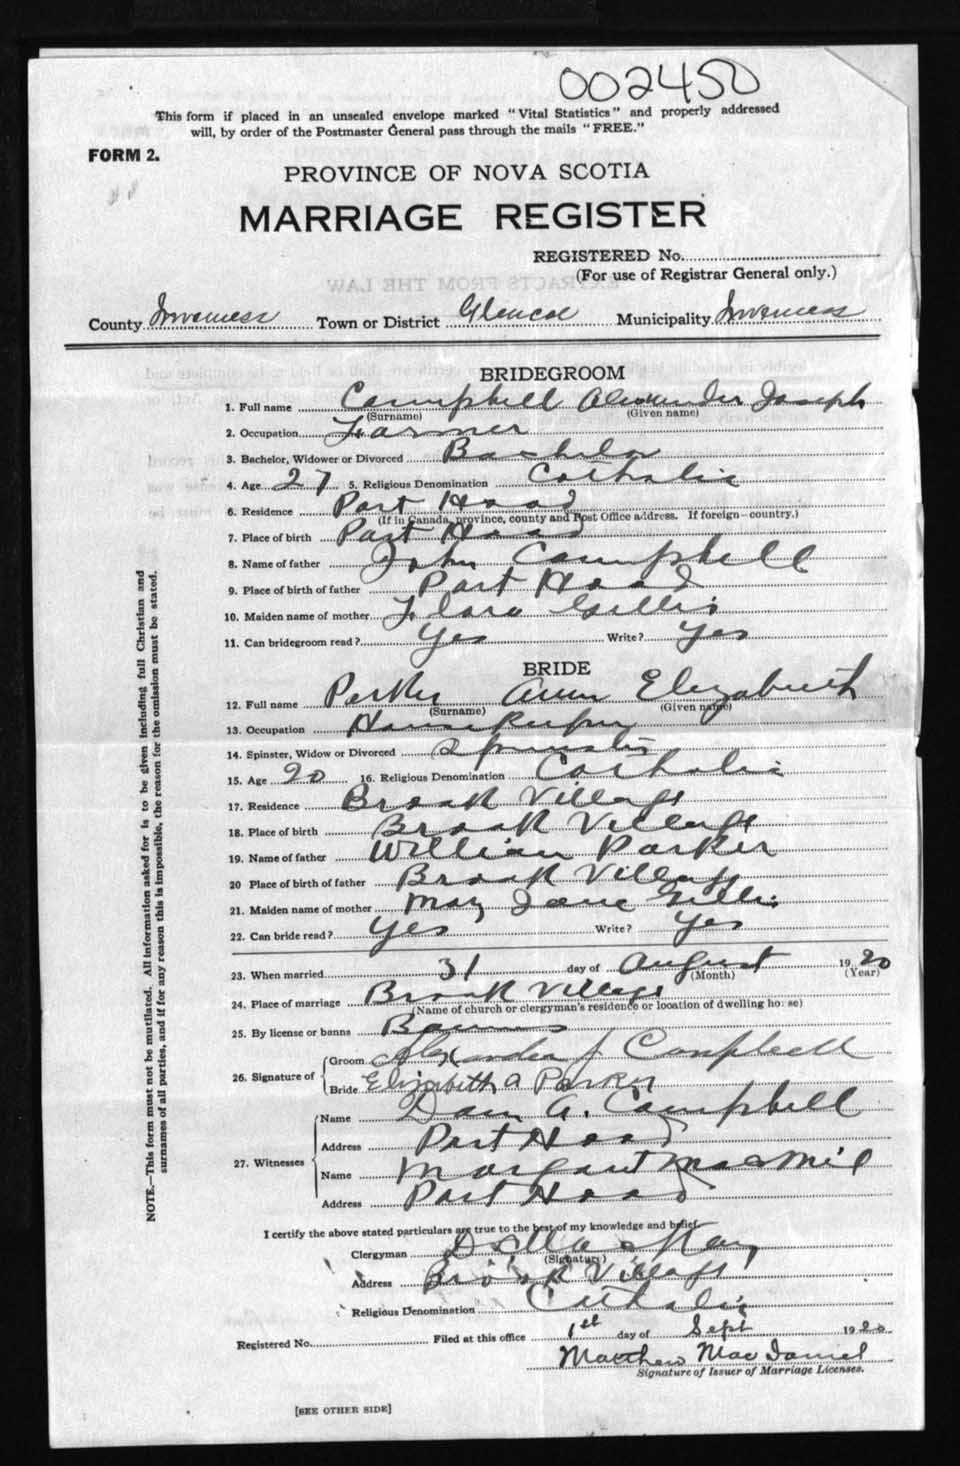 002450
This form if placed in an unsealed envelope marked "Vital Statistics" and properly addressed
will, by order of the Postmaster General pass through the mails "FREE."
FORM 2.
PROVINCE OF NOVA SCOTIA
MARRIAGE REGISTER
REGISTERED No.
(For use of Registrar General only.)
EXTRACTS FROM THE LAW
County Inverness Town or District Glencoe Municipality Inverness
BRIDEGROOM
1. Full name Campbell Alexander Joseph
(Surname) (Given name)
2. Occupation Farmer
3. Bachelor, Widower or Divorced Bachelor
4. Age 27 5. Religious Denomination Catholic
6. Residence Port Hood
(If in Canada, province, county and Post Office address. If foreign—country.)
7. Place of birth Port Hood
8. Name of father John Campbell
9. Place of birth of father Port Hood
10. Maiden name of mother Flora Gillis
11. Can bridegroom read? Yes Write? Yes
BRIDE
12. Full name Parker Ann Elizabeth
(Surname) (Given name)
13. Occupation Housekeeper
14. Spinster, Widow or Divorced Spinster
15. Age 20 16. Religious Denomination Catholic
17. Residence Brook Village
18. Place of birth Brook Village
19. Name of father William Parker
20 Place of birth of father Brook Village
21. Maiden name of mother Mary Jane Gillis
22. Can bride read? Yes Write? Yes
23. When married 31 day of August 1920
(Month) (Year)
24. Place of marriage Brook Village
(Name of church or clergyman's residence or location of dwelling house)
25. By license or banns Banns
26. Signature of Groom Alexander J Campbell
Bride Elizabeth A Parker
27. Witnesses Name Dan A. Campbell
Address Port Hood
Name Margaret
Address Port Hood
I certify the above stated particulars are true to the best of my knowledge and belief
Clergyman
(Signature)
Address Brook Village
Religious Denomination Catholic
Registered No. Filed at this office 1th day of Sept 1920
Matthew MacDaniel
Signature of Issuer of Marriage Licenses.
[SEE OTHER SIDE]
NOTE.—This form must not be mutilated. All information asked for is to be given including full Christian and
surnames of all parties, and if for any reason this is impossible, the reason for the omission must be stated.